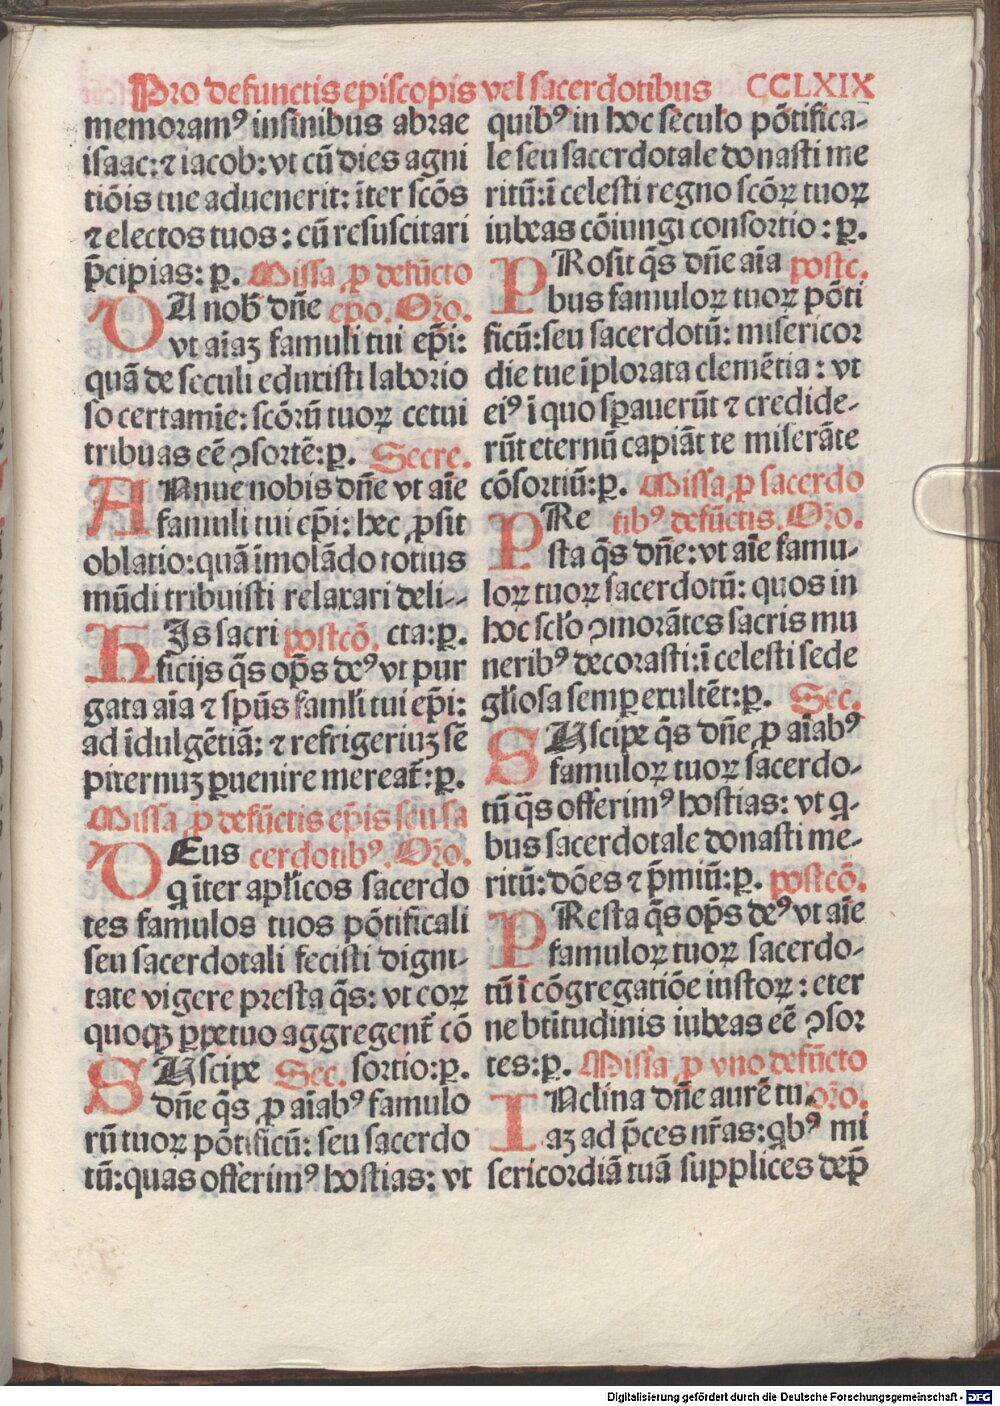 Pro defunctis episcopis vel sacerdotibus CCLXIX
memoramꝰ insinibus abrae
isaac: ⁊ iacob: vt cū dies agni
tiōis tue aduenerit: īter scōs
⁊ electos tuos: cū resuscitari
p̄cipias: p̲. Missa ꝓ defūcto
DA nob̄ dn̄e ep̄o. Oro.
vt aīaꝫ famuli tui ep̄i:
quā de seculi eduxisti laborio
so certamīe: scōrū tuoꝝ cetui
tribuas eē ꝯsortē: p̲. Secre.
ANnue nobis dn̄e vt aīe
famuli tui ep̄i: hec ꝓsit
oblatio: quā īmolādo totius
mūdi tribuisti relaxari deli--
HIs sacri postcō. cta: p̲.
ficijs q̄s op̄s deꝰ vt pur
gata aīa ⁊ spūs famłi tui ep̄i:
ad īdulgētiā: ⁊ refrigeriuꝫ sē
piternuꝫ ꝑuenire mereat̄: p̲.
Missa ꝓ defūctis ep̄is seu sa
DEus cerdotibꝰ. Oro.
q īter apłicos sacerdo
tes famulos tuos pōtificali
seu sacerdotali fecisti digni-
tate vigere presta q̄s: vt eoꝝ
quoqꝫ ꝑpetuo aggregent̄ cō
SUscipe Sec. sortio: p̲.
dn̄e q̄s ꝓ aīabꝰ famulo
rū tuoꝝ pōtificū: seu sacerdo
tū: quas offerimꝰ hostias: vt
quibꝰ in hoc seculo pōtifica-
le seu sacerdotale donasti me
ritū: ī celesti regno scōꝝ tuoꝝ
iubeas cōiungi consortio: p̲.
PRosit q̄s dn̄e aīa postc.
bus famuloꝝ tuoꝝ pōti
ficū: seu sacerdotū: misericor
die tue īplorata clemētia: vt
eiꝰ ī quo sꝑauerūt ⁊ credide-
rūt eternū capiāt te miserāte
cōsortiū: p̲. Missa ꝓ sacerdo
PRe tibꝰ defūctis. Oro.
sta q̄s dn̄e: vt aīe famu-
loꝝ tuoꝝ sacerdotū: quos in
hoc scło ꝯmorātes sacris mu
neribꝰ decorasti: ī celesti sede
głiosa semꝑ exultēt: p̲. Sec.
SUscipe q̄s dn̄e ꝓ aīabꝰ
famuloꝝ tuoꝝ sacerdo-
tū q̄s offerimꝰ hostias: vt q-
bus sacerdotale donasti me-
ritū: dōes ⁊ p̄miū: p̲. postcō.
PResta q̄s op̄s deꝰ vt aīe
famuloꝝ tuoꝝ sacerdo-
tū ī cōgregatiōe iustoꝝ: eter
ne btītudinis iubeas eē ꝯsor
tes: p̲. Missa ꝓ vno defūcto
INclina dn̄e aurē tu- oro.
aꝫ ad p̄ces nr̄as: qbꝰ mi
sericordiā tuā supplices dep̄
Digitalisierung gefördert durch die Deutsche Forschungsgemeinschaft - DFG